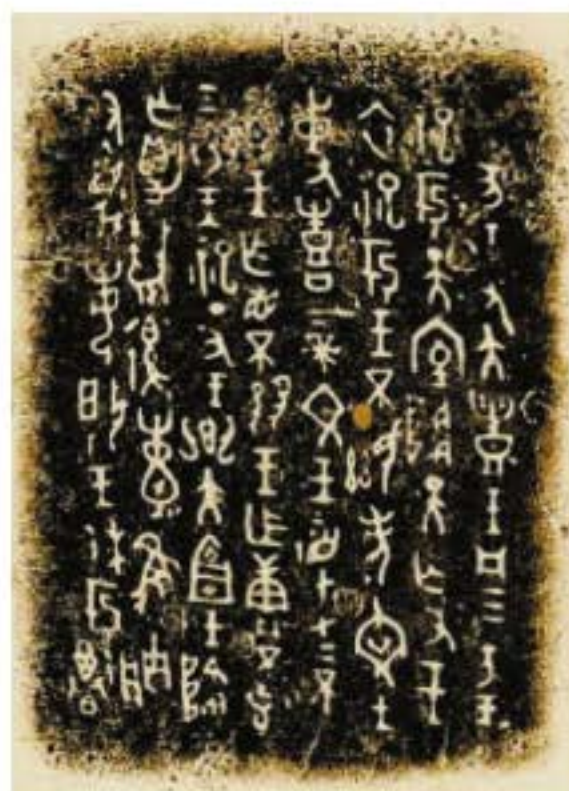 又大豊王凡三方王
祀于天室降天亡又王
衣祀于王不顯考文王
事喜上帝文王在上不
顯王乍省不王乍庚不克
三衣王祀丁丑王鄉大宜王降
亡爵復隹朕
又每揚王休于尊